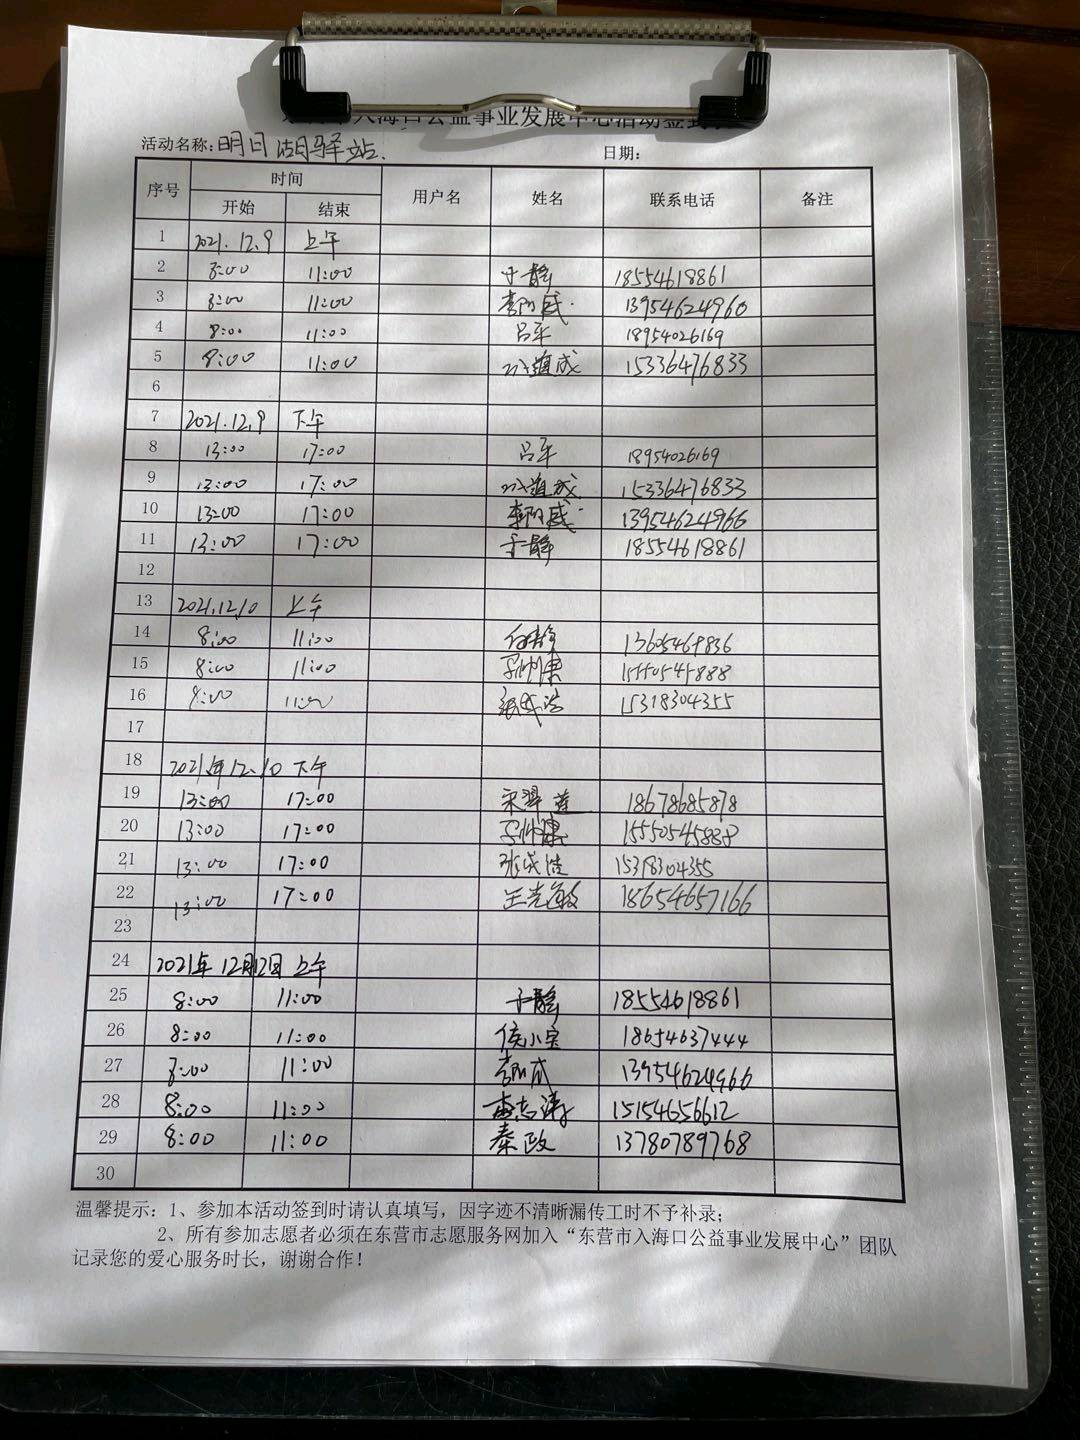 入海口公益事业发展中心活动签到
活动名称:明日湖驿站. 日期:
序号 时间 用户名 姓名 联系电话 备注
开始 结束
1 2021.12.9 上午
2 8:00 11:00 于静 18554618861
3 8:00 11:00 13954624960
4 8:00 11:00 吕平 18954026169
5 8:00 11:00 15336476833
6
7 2021.12.9 下午
8 13:00 17:00 吕平 18954026169
9 13:00 17:00 15336476833
10 13:00 17:00 13954624966
11 13:00 17:00 于静 18554618861
12
13 2021.12.10 上午
14 8:00 11:00 13605469836
15 8:00 11:00 15550545888
16 8:00 11:00 张成浩 15318304355
17
18 2021年12.10 下午
19 13:00 17:00 宋翠莲 18678685878
20 13:00 17:00 15550545888
21 13:00 17:00 张成浩 15318304355
22 13:00 17:00 王志敏 18654657166
23
24 2021年12月12日 上午
25 8:00 11:00 于静 18554618861
26 8:00 11:00 侯小宝 18654637444
27 8:00 11:00 13954624966
28 8:00 11:00 15154656612
29 8:00 11:00 秦政 13780789768
30
温馨提示:1、参加本活动签到时请认真填写,因字迹不清晰漏传工时不予补录;
2、所有参加志愿者必须在东营市志愿服务网加入“东营市入海口公益事业发展中心”团队
记录您的爱心服务时长,谢谢合作!